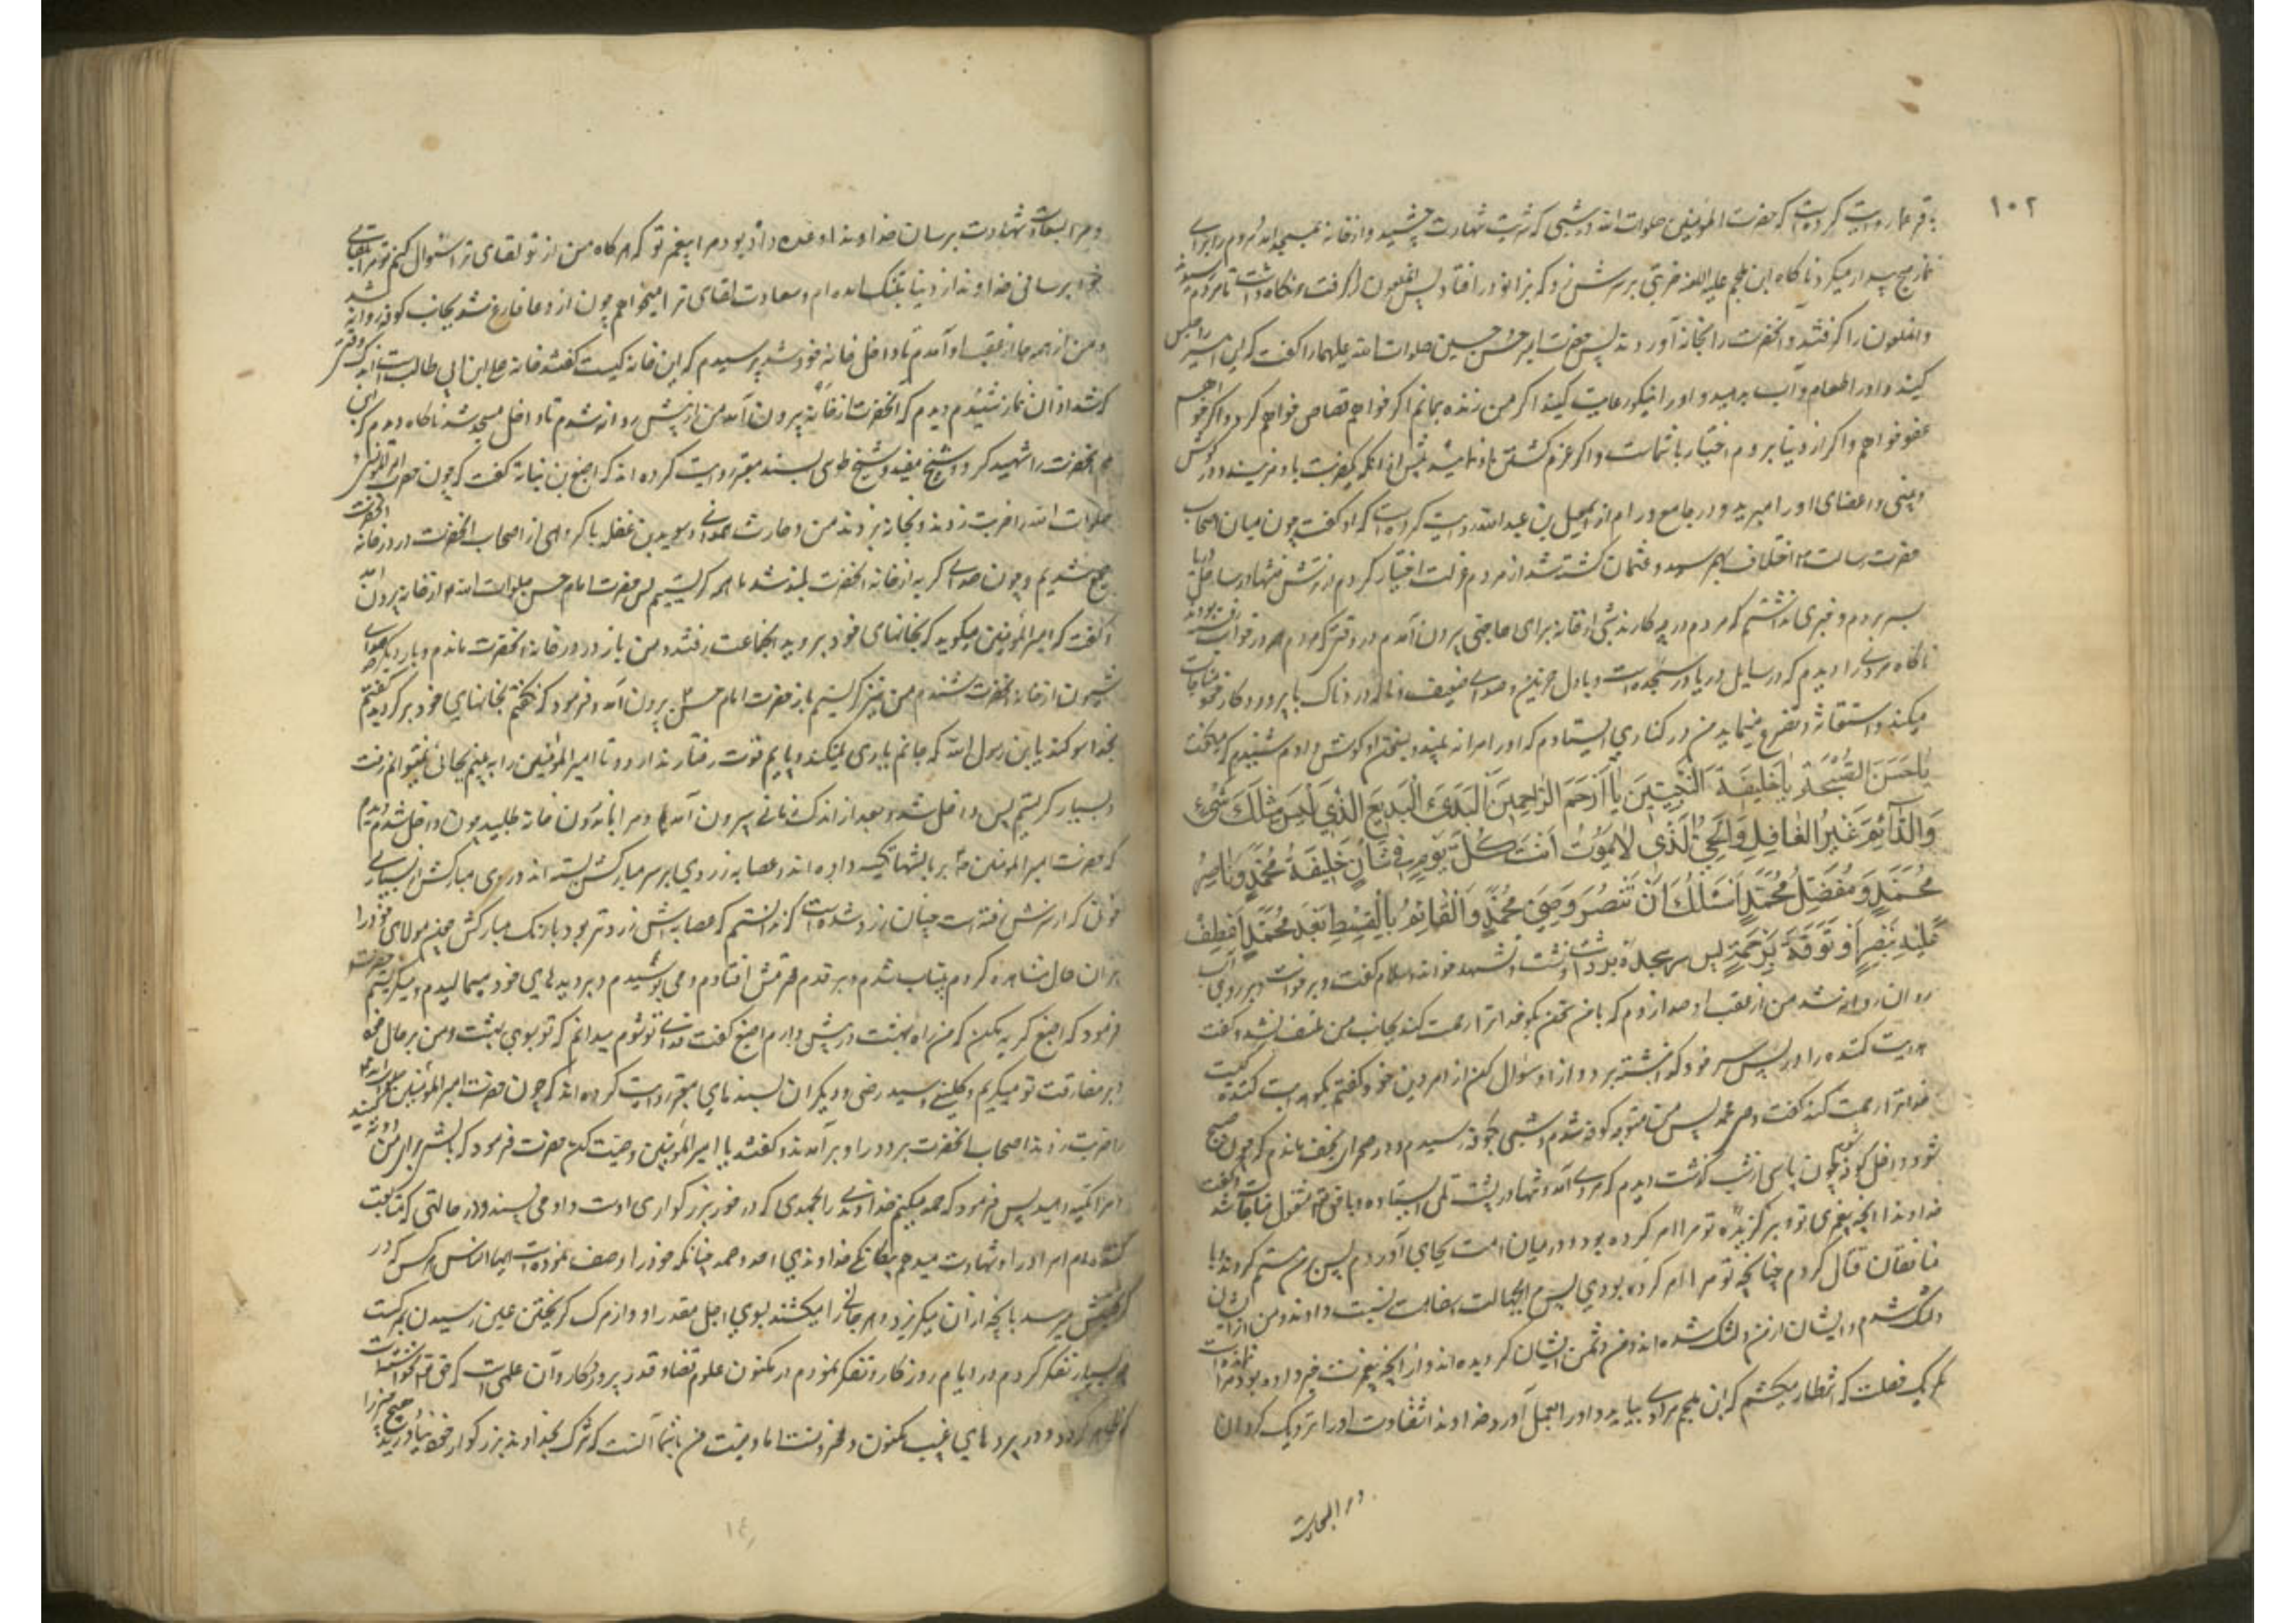 ۱۰۲
باقر علیه روایت کرده است که حضرت امیرالمؤمنین صلوات الله در شبی که شربت شهادت چشید و از خانه بمسجد آمد مردم را برای
نماز صبح بیدار میکرد ناگاه ابن ملجم علیه اللعنه ضربتی بر سرش زد که بزانو در افتاد پس آن ملعون را گرفت و نگاه داشت تا مردم رسیدند
و آنملعون را گرفتند و آنحضرت را بخانه آوردند پس حضرت امام حسن و حسین صلوات الله علیهما را گفت که این اسیر را حبس
کنید و او را طعام و آب بدهید و او را نیکو رعایت کنید اگر من زنده بمانم اگر خواهم قصاص خواهم کرد و اگر خواهم
عفو خواهم و اگر از دنیا بروم اختیار با شماست و اگر عزم کشتن او نمائید پیش از آنکه یکضربت باو مزنید و گوش
و بینی و اعضای او را مبرید و در جامع ورام از اسمعیل بن عبدالله روایت کرده است که او گفت چون میان اصحاب
حضرت رسالت ص اختلاف بهم رسید و عثمان کشته شد از مردم عزلت اختیار کردم در تنها در ساحل دریا
بسر بردم و خبری نداشتم که مردم در چه کارند شبی از خانه برای حاجتی بیرون آمدم در وقتی که مردم همه در خواب رفته بودند
ناگاه مردی را دیدم که در ساحل دریا در سجده است و با دل حزین و صدای ضعیف و ناله دردناک با پروردگار خود مناجات
میکند و استغاثه و تضرع مینماید من در کناری ایستادم که او مرا نه بیند و بسخن او گوش دادم شنیدم که میگفت
یا حَسَنَ الصُّحْبَةِ یا خَلیفَةَ النَّبِیّینَ یا اَرْحَمَ الرّاحِمینَ اَلْبَدیءَ الْبَدیعَ الَّذی لَیْسَ مِثْلَکَ شَیْءٌ
وَالدّائِمَ غَیْرُ الْغافِلِ وَالْحَیَّ الَّذی لا یَمُوتُ اَنْتَ کُلَّ یَوْمٍ فی شَأْنٍ خَلیفَةُ مُحَمَّدٍ وَناصِرُ
مُحَمَّدٍ وَمُفَضِّلُ مُحَمَّدٍ اَسْئَلُکَ اَنْ تَنْصُرَ وَصِیَّ مُحَمَّدٍ وَالْقائِمَ بِالْقِسْطِ بَعْدَ مُحَمَّدٍ اِعْطِفْ
عَلَیْهِ بِنَصْرٍ اَوْ تَوَفَّهُ بِرَحْمَةٍ پس سر از سجده برداشت و نشست و تشهد خواند و سلام گفت و برخواست و بر روی آب
روان روانه شد من از عقب او صدا زدم که با من سخن بگو خدا ترا رحمت کند بجانب من ملتفت نشد و گفت
هدایت کننده را در پس سر خود گذاشته برو و از او سؤال کن از امر دین خود گفتم بگو هدایت کننده کیست
خدا ترا رحمت کند گفت وصی محمد پس من متوجه کوفه شدم شبی بکوفه رسیدم و در صحرای نجف ماندم که چون صبح
شود داخل کوفه شوم چون پاسی از شب گذشت دیدم که مردی آمد و تنها در پشت تلی ایستاده و با حق تعالی مشغول مناجات شد و گفت
خداوندا آنچه پیغمبری تو و برگزیدهٔ تو مرا امر کرده بود در میان امت بجای آوردم پس بر من ستم کردند و با
منافقان قتال کردم چنانچه تو مرا امر کرده بودی پس مرا بجهالت نسبت دادند و من از ایشان
دلتنگ شدم و ایشان از من دلتنگ شده اند و من دشمن ایشان گردیده اند و از آنچه پیغمبرت خبر داده بود مرا نمانده است
مگر یک خصلت که انتظار میکشم که ابن ملجم مرادی بیاید و او را بعمل آورد خداوندا شقاوت او را نزدیک گردان
و مرا بسعادت
و مرا بسعادت شهادت برسان خداوندا وعده داده بود مرا پیغمبر تو که هرگاه من از تو لقای ترا سؤال کنم تو مرا بلقای
خود برسانی خداوندا از دنیا بتنگ آمده ام و سعادت لقای ترا میخواهم چون از دعا فارغ شد بجانب کوفه روانه شد
و من از همه جا از عقب او آمدم تا داخل خانه خود شد پرسیدم که این خانه کیست گفتند خانه علی ابن ابی طالب است اندک وقتی
که شد اذان نماز شنیدم دیدم که آنحضرت از خانه بیرون آمد من از پیش روانه شدم تا داخل مسجد شد ناگاه دیدم که ابن
ملجم آنحضرت را شهید کرد و شیخ مفید و شیخ طوسی بسند معتبر روایت کرده اند که اصبغ بن نباته گفت که چون حضرت امیرالمؤمنین
صلوات الله را ضربت زدند و بخانه بردند من و حارث همدانی و سوید بن غفله با گروهی از اصحاب آنحضرت در در خانه آنحضرت
جمع شدیم و چون صدای گریه از خانه آنحضرت بلند شد ما همه گریستیم پس حضرت امام حسن صلوات الله علیه از خانه بیرون آمد
و گفت که امیرالمؤمنین میگوید که بخانهای خود بروید آنجماعت رفتند و من باز در در خانه آنحضرت ماندم و بار دیگر صدای
شیون از خانه آنحضرت شنیدم من نیز گریستم باز حضرت امام حسن ع بیرون آمد و فرمود که نگفتم بخانهای خود برگردید گفتم
بخدا سوگند یابن رسول الله که جانم یاری نمیکند و پایم قوت رفتار ندارد و تا امیرالمؤمنین را نه بینم بجائی نمیتوانم رفت
و بسیار گریستم پس داخل شد و بعد از اندک زمانی بیرون آمد و مرا باندرون خانه طلبید چون داخل شدم دیدم
که حضرت امیرالمؤمنین را بر بالشها تکیه داده اند و عصابه زردی بر سر مبارکش بسته اند و روی مبارکش از بسیاری
خونی که از سرش رفته است چنان زرد شده است که ندانستم که عصابه اش زردتر بود یا رنگ مبارکش چون مولای خود را
بدان حال مشاهده کردم بیتاب شدم و بر قدم محترمش افتادم و می بوسیدم و بر دیدهای خود میمالیدم و میگریستم حضرت
فرمود که اصبغ گریه مکن که من راه بهشت در پیش دارم اصبغ گفت فدای تو شوم میدانم که تو بسوی بهشت و من بر حال خود
و بر مفارقت تو میگریم و کلینی و سید رضی و دیگران بسندهای معتبر روایت کرده اند که چون حضرت امیرالمؤمنین
را ضربت زدند اصحاب آنحضرت بر دور او بر آمدند و گفتند یا امیرالمؤمنین وصیت کن حضرت فرمود که بالشی برای من
و مرا تکیه دهید پس فرمود که حمد میکنم خداوند را بحمدی که در خور بزرگواری اوست و او می پسندد در حالتی که متابعت
کننده ام امر او را و شهادت میدهم بیگانگی خداوندی احد و صمد چنانکه خود را وصف نموده است ایها الناس هر کس که در
گریختنش میرسد بآنچه از آن میگریزد و هر جانی را میکشند بسوی اجل مقدر او و از مرگ گریختن عین رسیدن بمرگست
چه بسیار تفکر کردم در ایام روزگار و تفکر نمودم در مکنون علوم قضا و قدر پروردگار و آن علمی است که حق تعالی نخواسته است
که ظاهر گردد و در پردهای غیب مکنون و مخزونست اما وصیت من با شما آنست که شرک بخداوند بزرگوار خود نیاورید و هیچ چیز را
۱٤